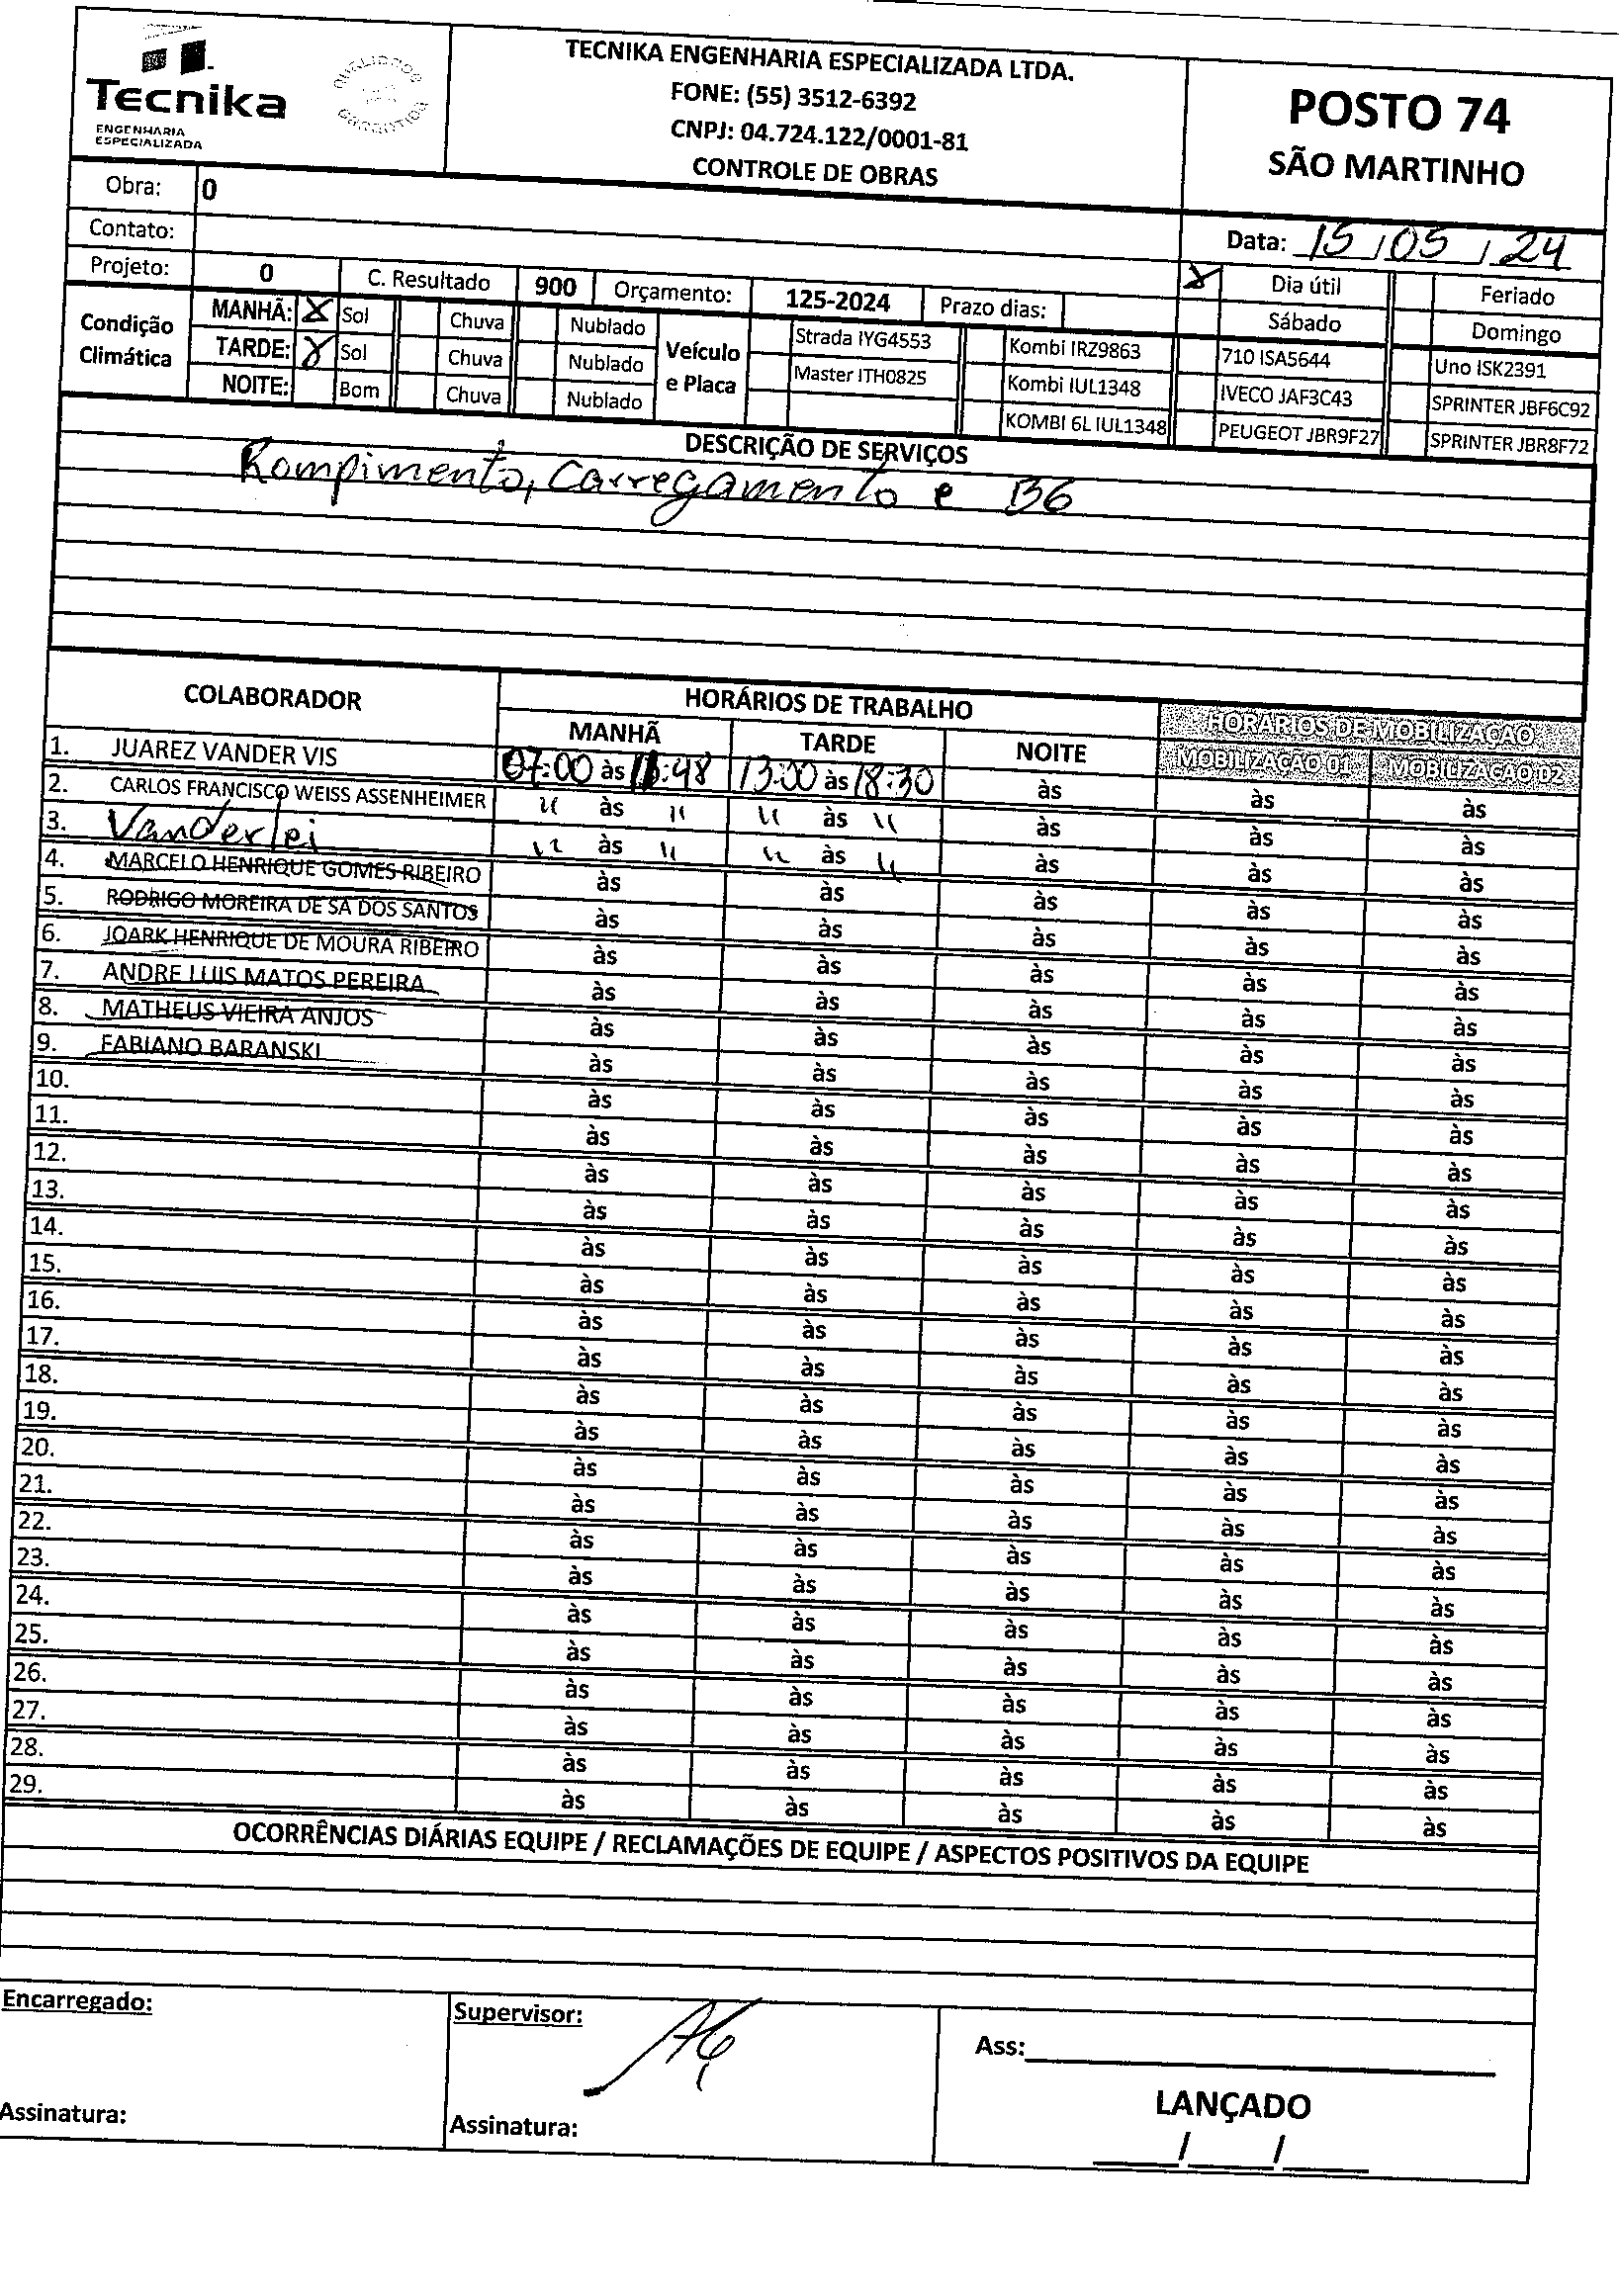 Tecnika
ENGENHARIA
ESPECIALIZADA
TECNIKA ENGENHARIA ESPECIALIZADA LTDA.
FONE: (55) 3512-6392
CNPJ: 04.724.122/0001-81
CONTROLE DE OBRAS
POSTO 74
SÃO MARTINHO
Obra: 0
Contato:
Data: 15/05/24
Projeto: 0 C. Resultado 900 Orçamento: 125-2024 Prazo dias:
X Dia útil Feriado
Sábado Domingo
Condição Climática
MANHÃ: X Sol Chuva Nublado
TARDE: X Sol Chuva Nublado
NOITE: Bom Chuva Nublado
Veículo e Placa
Strada IYG4553 Kombi IRZ9863 710 ISA5644 Uno ISK2391
Master ITH0825 Kombi IUL1348 IVECO JAF3C43 SPRINTER JBF6C92
KOMBI 6L IUL1348 PEUGEOT JBR9F27 SPRINTER JBR8F72
DESCRIÇÃO DE SERVIÇOS
Rompimento, Carregamento e B6
COLABORADOR HORÁRIOS DE TRABALHO HORÁRIOS DE MOBILIZAÇÃO
MANHÃ TARDE NOITE MOBILIZAÇÃO 01 MOBILIZAÇÃO 02
1. JUAREZ VANDER VIS 07:00 às 11:48 13:00 às 18:30 às às às
2. CARLOS FRANCISCO WEISS ASSENHEIMER " às " " às " às às às
3. Vanderlei " às " " às " às às às
4. MARCELO HENRIQUE GOMES RIBEIRO às às às às às
5. RODRIGO MOREIRA DE SA DOS SANTOS às às às às às
6. JOARK HENRIQUE DE MOURA RIBEIRO às às às às às
7. ANDRE LUIS MATOS PEREIRA às às às às às
8. MATHEUS VIEIRA ANJOS às às às às às
9. FABIANO BARANSKI às às às às às
10. às às às às às
11. às às às às às
12. às às às às às
13. às às às às às
14. às às às às às
15. às às às às às
16. às às às às às
17. às às às às às
18. às às às às às
19. às às às às às
20. às às às às às
21. às às às às às
22. às às às às às
23. às às às às às
24. às às às às às
25. às às às às às
26. às às às às às
27. às às às às às
28. às às às às às
29. às às às às às
OCORRÊNCIAS DIÁRIAS EQUIPE / RECLAMAÇÕES DE EQUIPE / ASPECTOS POSITIVOS DA EQUIPE
Encarregado:
Supervisor:
Ass:
LANÇADO
Assinatura:
Assinatura:
/ /